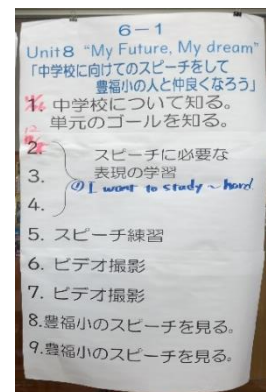 6－1
Unit8 "My Future, My dream"
「中学校に向けてのスピーチをして
豊福小の人と仲良くなろう」
1. 中学校について知る。
単元のゴールを知る。
2.
スピーチに必要な
3. 表現の学習
① I want to study ~ hard.
4.
5. スピーチ練習
6. ビデオ撮影
7. ビデオ撮影
8.豊福小のスピーチを見る。
9.豊福小のスピーチを見る。